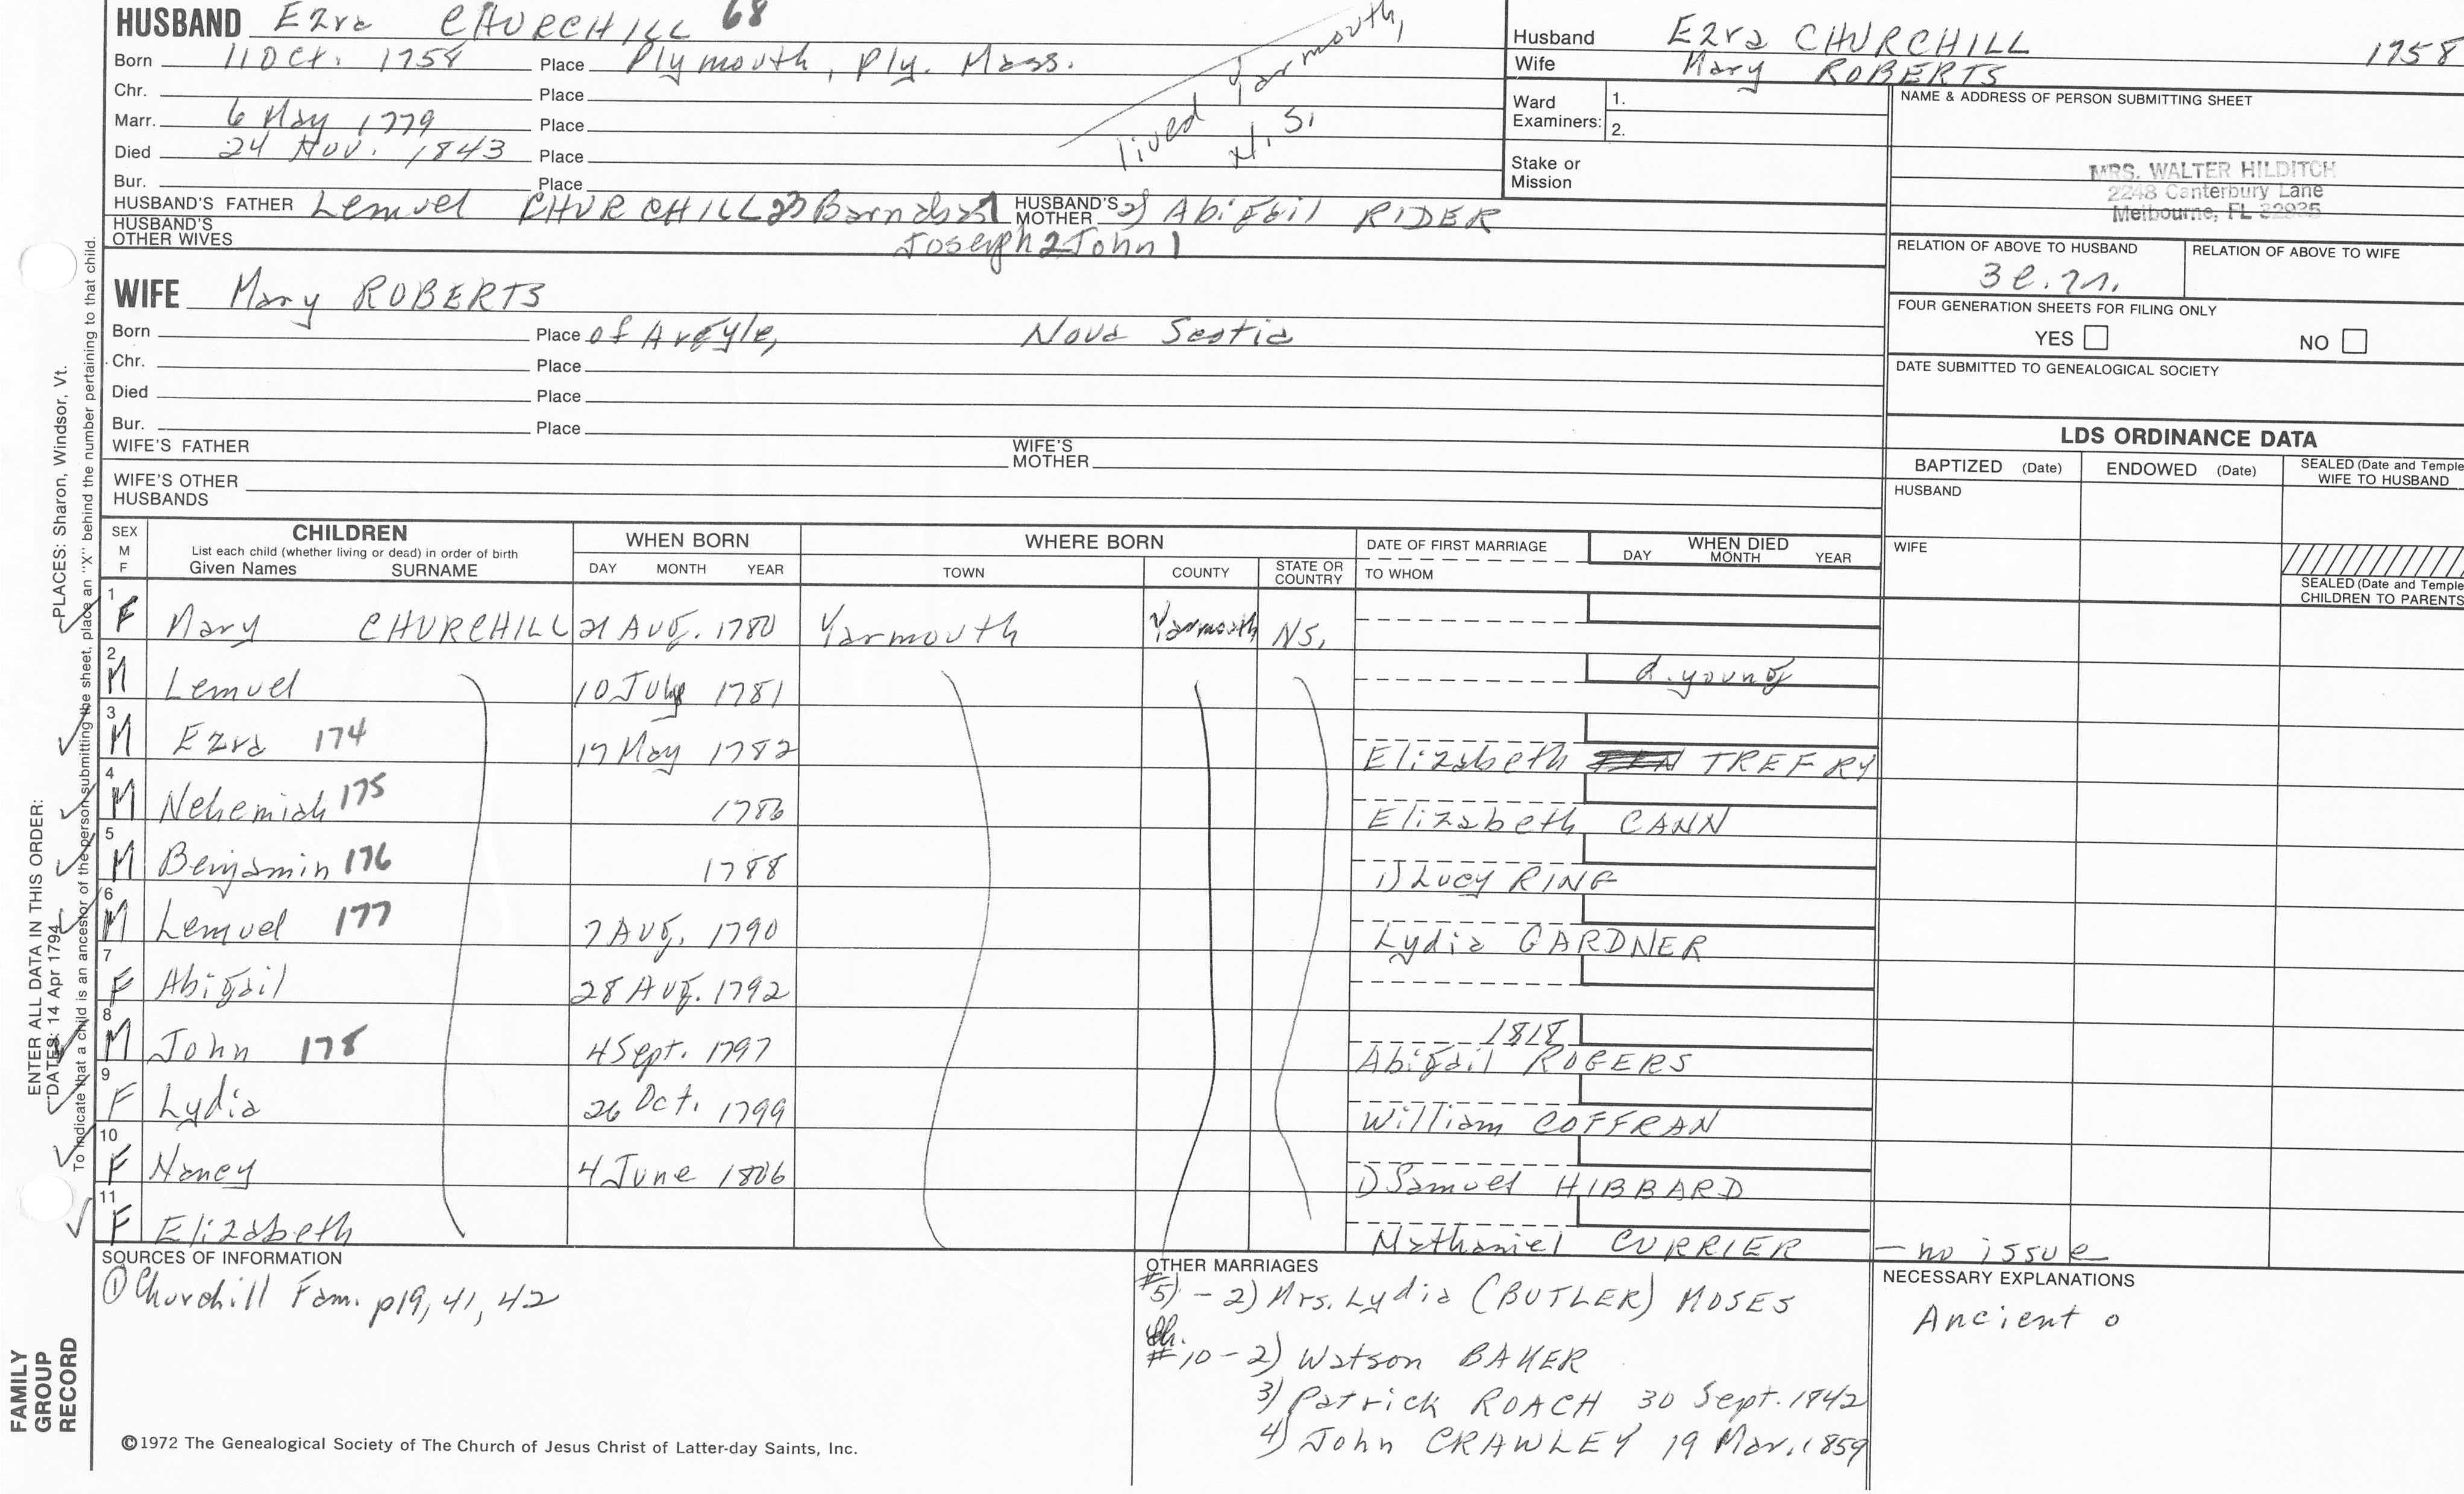 HUSBAND Ezra CHURCHILL 68
Born 11 Oct. 1758 Place Plymouth, Ply. Mass.
Chr. Place
Marr. 6 May 1779 Place
Died 24 Nov. 1843 Place
Bur. Place
lived Yarmouth,
N.S.
HUSBAND'S FATHER Lemuel CHURCHILL 23 Barnabas 7 HUSBAND'S MOTHER 2) Abigail RIDER
HUSBAND'S OTHER WIVES Joseph 2 John 1
Husband Ezra CHURCHILL 1758
Wife Mary ROBERTS
Ward Examiners: 1.
2.
Stake or Mission
NAME & ADDRESS OF PERSON SUBMITTING SHEET
MRS. WALTER HILDITCH
2248 Canterbury Lane
Melbourne, FL 32935
RELATION OF ABOVE TO HUSBAND RELATION OF ABOVE TO WIFE
FOUR GENERATION SHEETS FOR FILING ONLY
YES NO
DATE SUBMITTED TO GENEALOGICAL SOCIETY
WIFE Mary ROBERTS
Born Place of Argyle, Nova Scotia
Chr. Place
Died Place
Bur. Place
WIFE'S FATHER WIFE'S MOTHER
WIFE'S OTHER HUSBANDS
LDS ORDINANCE DATA
BAPTIZED (Date) ENDOWED (Date) SEALED (Date and Temple
WIFE TO HUSBAND
HUSBAND
WIFE
SEALED (Date and Temple
CHILDREN TO PARENTS
SEX M F CHILDREN WHEN BORN WHERE BORN DATE OF FIRST MARRIAGE WHEN DIED
List each child (whether living or dead) in order of birth
Given Names SURNAME DAY MONTH YEAR TOWN COUNTY STATE OR COUNTRY TO WHOM DAY MONTH YEAR
1 F Mary CHURCHILL 21 Aug. 1780 Yarmouth Yarmouth NS.
2 M Lemuel 10 July 1781 d. young
3 M Ezra 174 17 May 1782 Elizabeth TREFRY
4 M Nehemiah 175 1786 Elizabeth CANN
5 M Benjamin 176 1788 1) Lucy RING
6 M Lemuel 177 7 Aug. 1790 Lydia GARDNER
7 F Abigail 28 Aug. 1792
8 M John 178 4 Sept. 1797 1818
Abigail ROGERS
9 F Lydia 26 Oct. 1799 William COFFRAN
10 F Nancy 4 June 1806 1) Samuel HIBBARD
11 F Elizabeth Nathaniel CURRIER - no issue
SOURCES OF INFORMATION
① Churchill Fam. p19, 41, 42
OTHER MARRIAGES
#5) - 2) Mrs. Lydia (BUTLER) MOSES
#10 - 2) Watson BAKER
3) Patrick ROACH 30 Sept. 1842
4) John CRAWLEY 19 Mar. 1859
NECESSARY EXPLANATIONS
Ancient o
©1972 The Genealogical Society of The Church of Jesus Christ of Latter-day Saints, Inc.
FAMILY
GROUP
RECORD
ENTER ALL DATA IN THIS ORDER:
DATES: 14 Apr 1794
PLACES: Sharon, Windsor, Vt.
To indicate that a child is an ancestor of the person submitting the sheet, place an "X" behind the number pertaining to that child.